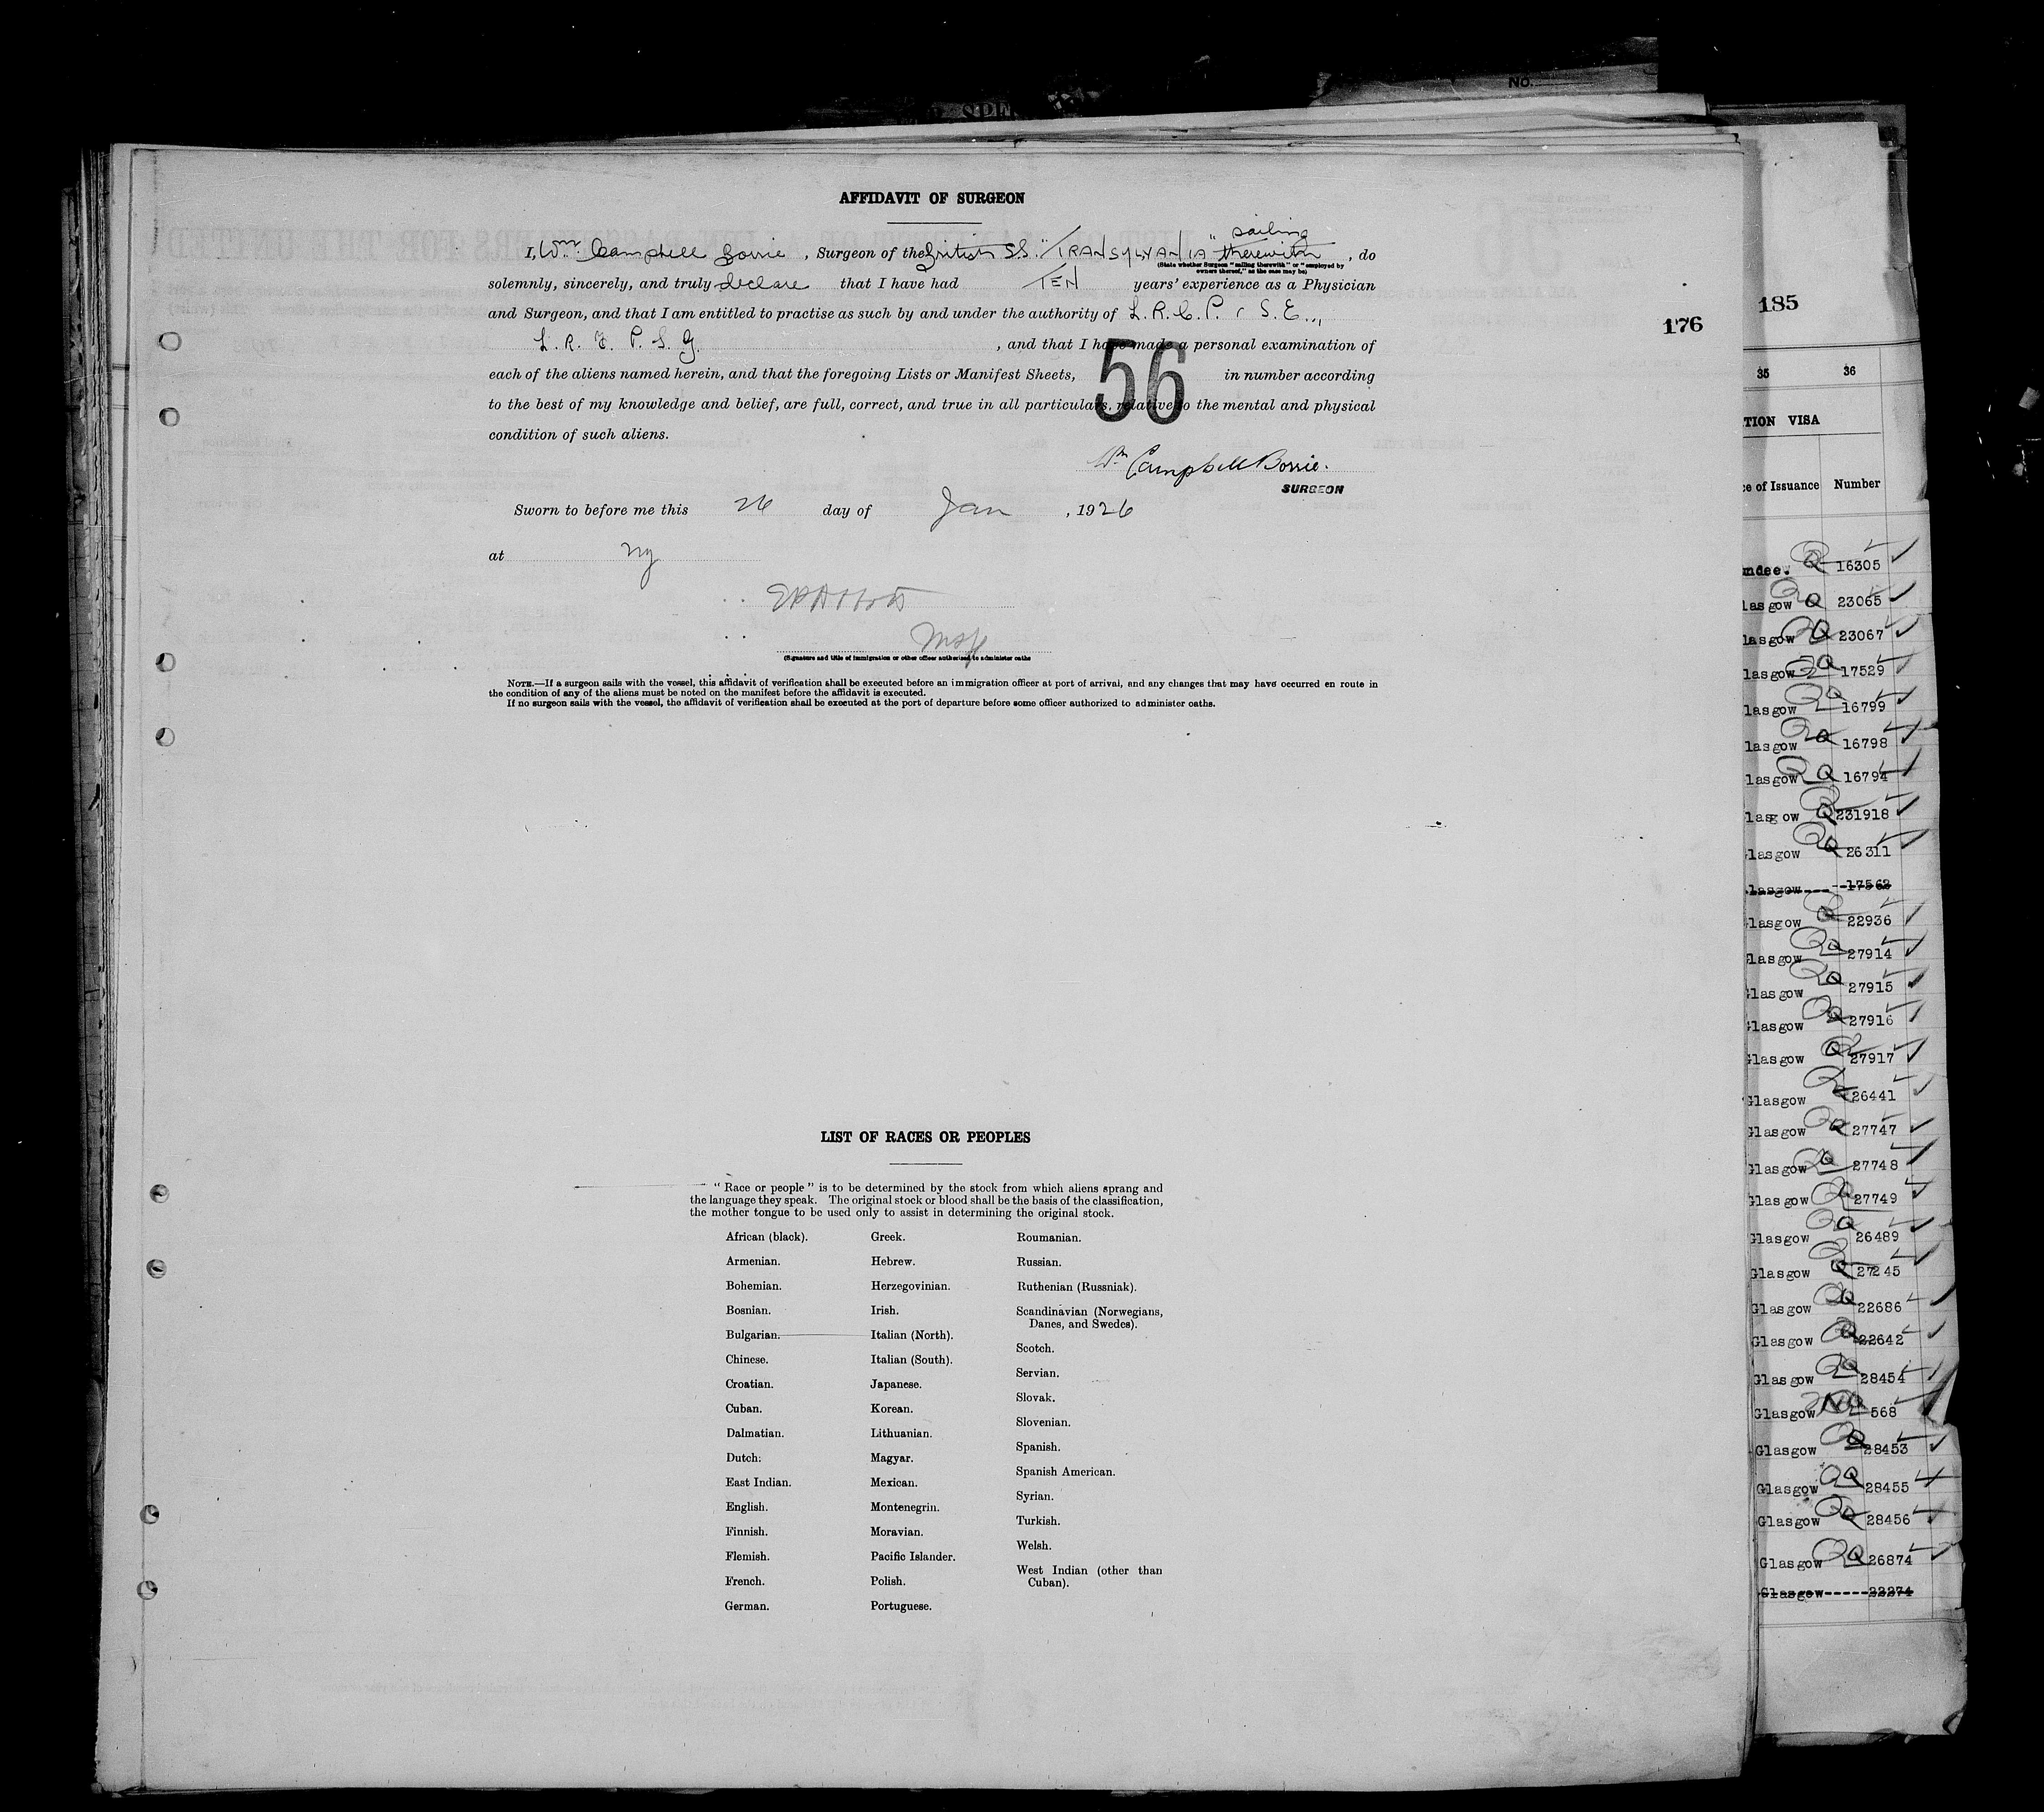 NO.
AFFIDAVIT OF SURGEON
sailing
I, Wm Campbell Borrie, Surgeon of the British S.S. "TRANSYLVANIA" therewith, do
(State whether Surgeon "sailing therewith" or "employed by
owners thereof," as the case may be)
solemnly, sincerely, and truly declare that I have had TEN years' experience as a Physician
and Surgeon, and that I am entitled to practise as such by and under the authority of L. R. C. P. & S. E.,
L. R. F. P. S. G. , and that I have made a personal examination of
each of the aliens named herein, and that the foregoing Lists or Manifest Sheets, 56 in number according
to the best of my knowledge and belief, are full, correct, and true in all particulars, relative to the mental and physical
condition of such aliens.
Wm Campbell Borrie.
SURGEON
Sworn to before me this 26 day of Jan , 1926
at NY
(Signature and title of immigration or other officer authorised to administer oaths
NOTE.—If a surgeon sails with the vessel, this affidavit of verification shall be executed before an immigration officer at port of arrival, and any changes that may have occurred en route in
the condition of any of the aliens must be noted on the manifest before the affidavit is executed.
If no surgeon sails with the vessel, the affidavit of verification shall be executed at the port of departure before some officer authorized to administer oaths.
LIST OF RACES OR PEOPLES
"Race or people" is to be determined by the stock from which aliens sprang and
the language they speak. The original stock or blood shall be the basis of the classification,
the mother tongue to be used only to assist in determining the original stock.
African (black).
Armenian.
Bohemian.
Bosnian.
Bulgarian.
Chinese.
Croatian.
Cuban.
Dalmatian.
Dutch.
East Indian.
English.
Finnish.
Flemish.
French.
German.
Greek.
Hebrew.
Herzegovinian.
Irish.
Italian (North).
Italian (South).
Japanese.
Korean.
Lithuanian.
Magyar.
Mexican.
Montenegrin.
Moravian.
Pacific Islander.
Polish.
Portuguese.
Roumanian.
Russian.
Ruthenian (Russniak).
Scandinavian (Norwegians,
Danes, and Swedes).
Scotch.
Servian.
Slovak.
Slovenian.
Spanish.
Spanish American.
Syrian.
Turkish.
Welsh.
West Indian (other than
Cuban).
176
185
35 36
TION VISA
ce of Issuance Number
ndee. Q 16305
lasgow Q 23065
lasgow Q 23067
lasgow Q 17529
lasgow Q 16799
lasgow Q 16798
lasgow Q 16794
lasgow Q 231918
lasgow Q 26311
lasgow 17562
lasgow Q 22936
lasgow Q 27914
lasgow Q 27915
lasgow Q 27916
Glasgow Q 27917
Glasgow Q 26441
Glasgow Q 27747
Glasgow Q 27748
Glasgow Q 27749
Glasgow Q 26489
Glasgow Q 27245
Glasgow Q 22686
Glasgow Q 22642
Glasgow Q 28454
Glasgow NQ 568
Glasgow Q 28453
Glasgow Q 28455
Glasgow Q 28456
Glasgow Q 26874
Glasgow 22274